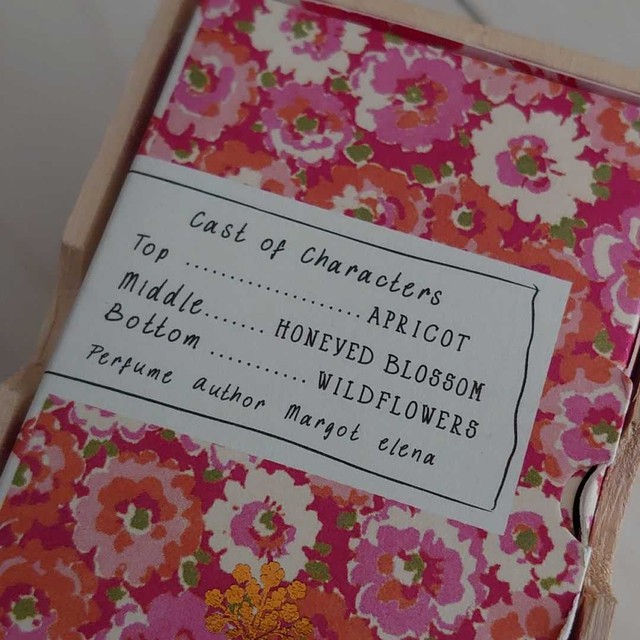 Cast of Characters
Top ....................APRICOT
Middle....... HONEYED BLOSSOM
Bottom ........... WILDFLOWERS
Perfume author Margot elena